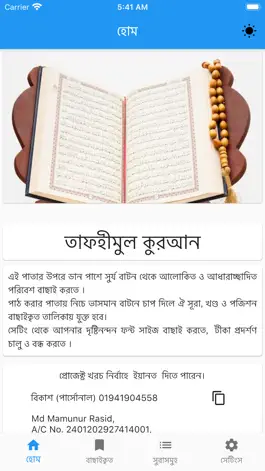 Carrier
5:41 AM
হোম
তাফহীমুল কুরআন
এই পাতার উপরে ডান পাশে সুর্য বাটন থেকে আলোকিত ও আধারাচ্ছাদিত
পরিবেশ বাছাই করতে ।
পাঠ করার পাতায় নিচে ভাসমান বাটনে চাপ দিলে ঐ সূরা, খণ্ড ও পজিশন
বাছাইকৃত তালিকায় যুক্ত হবে।
সেটিং থেকে আপনার দৃষ্টিনন্দন ফন্ট সাইজ বাছাই করতে, টীকা প্রদর্শণ
চালু ও বন্ধ করতে ।
প্রোজেক্ট খরচ নির্বাহে ইয়ানত দিতে পারেন।
বিকাশ (পার্সোনাল) 01941904558
Md Mamunur Rasid,
A/C No. 2401202927414001,
হোম
বাছাইকৃত
সুরাসমুহ
সেটিংস